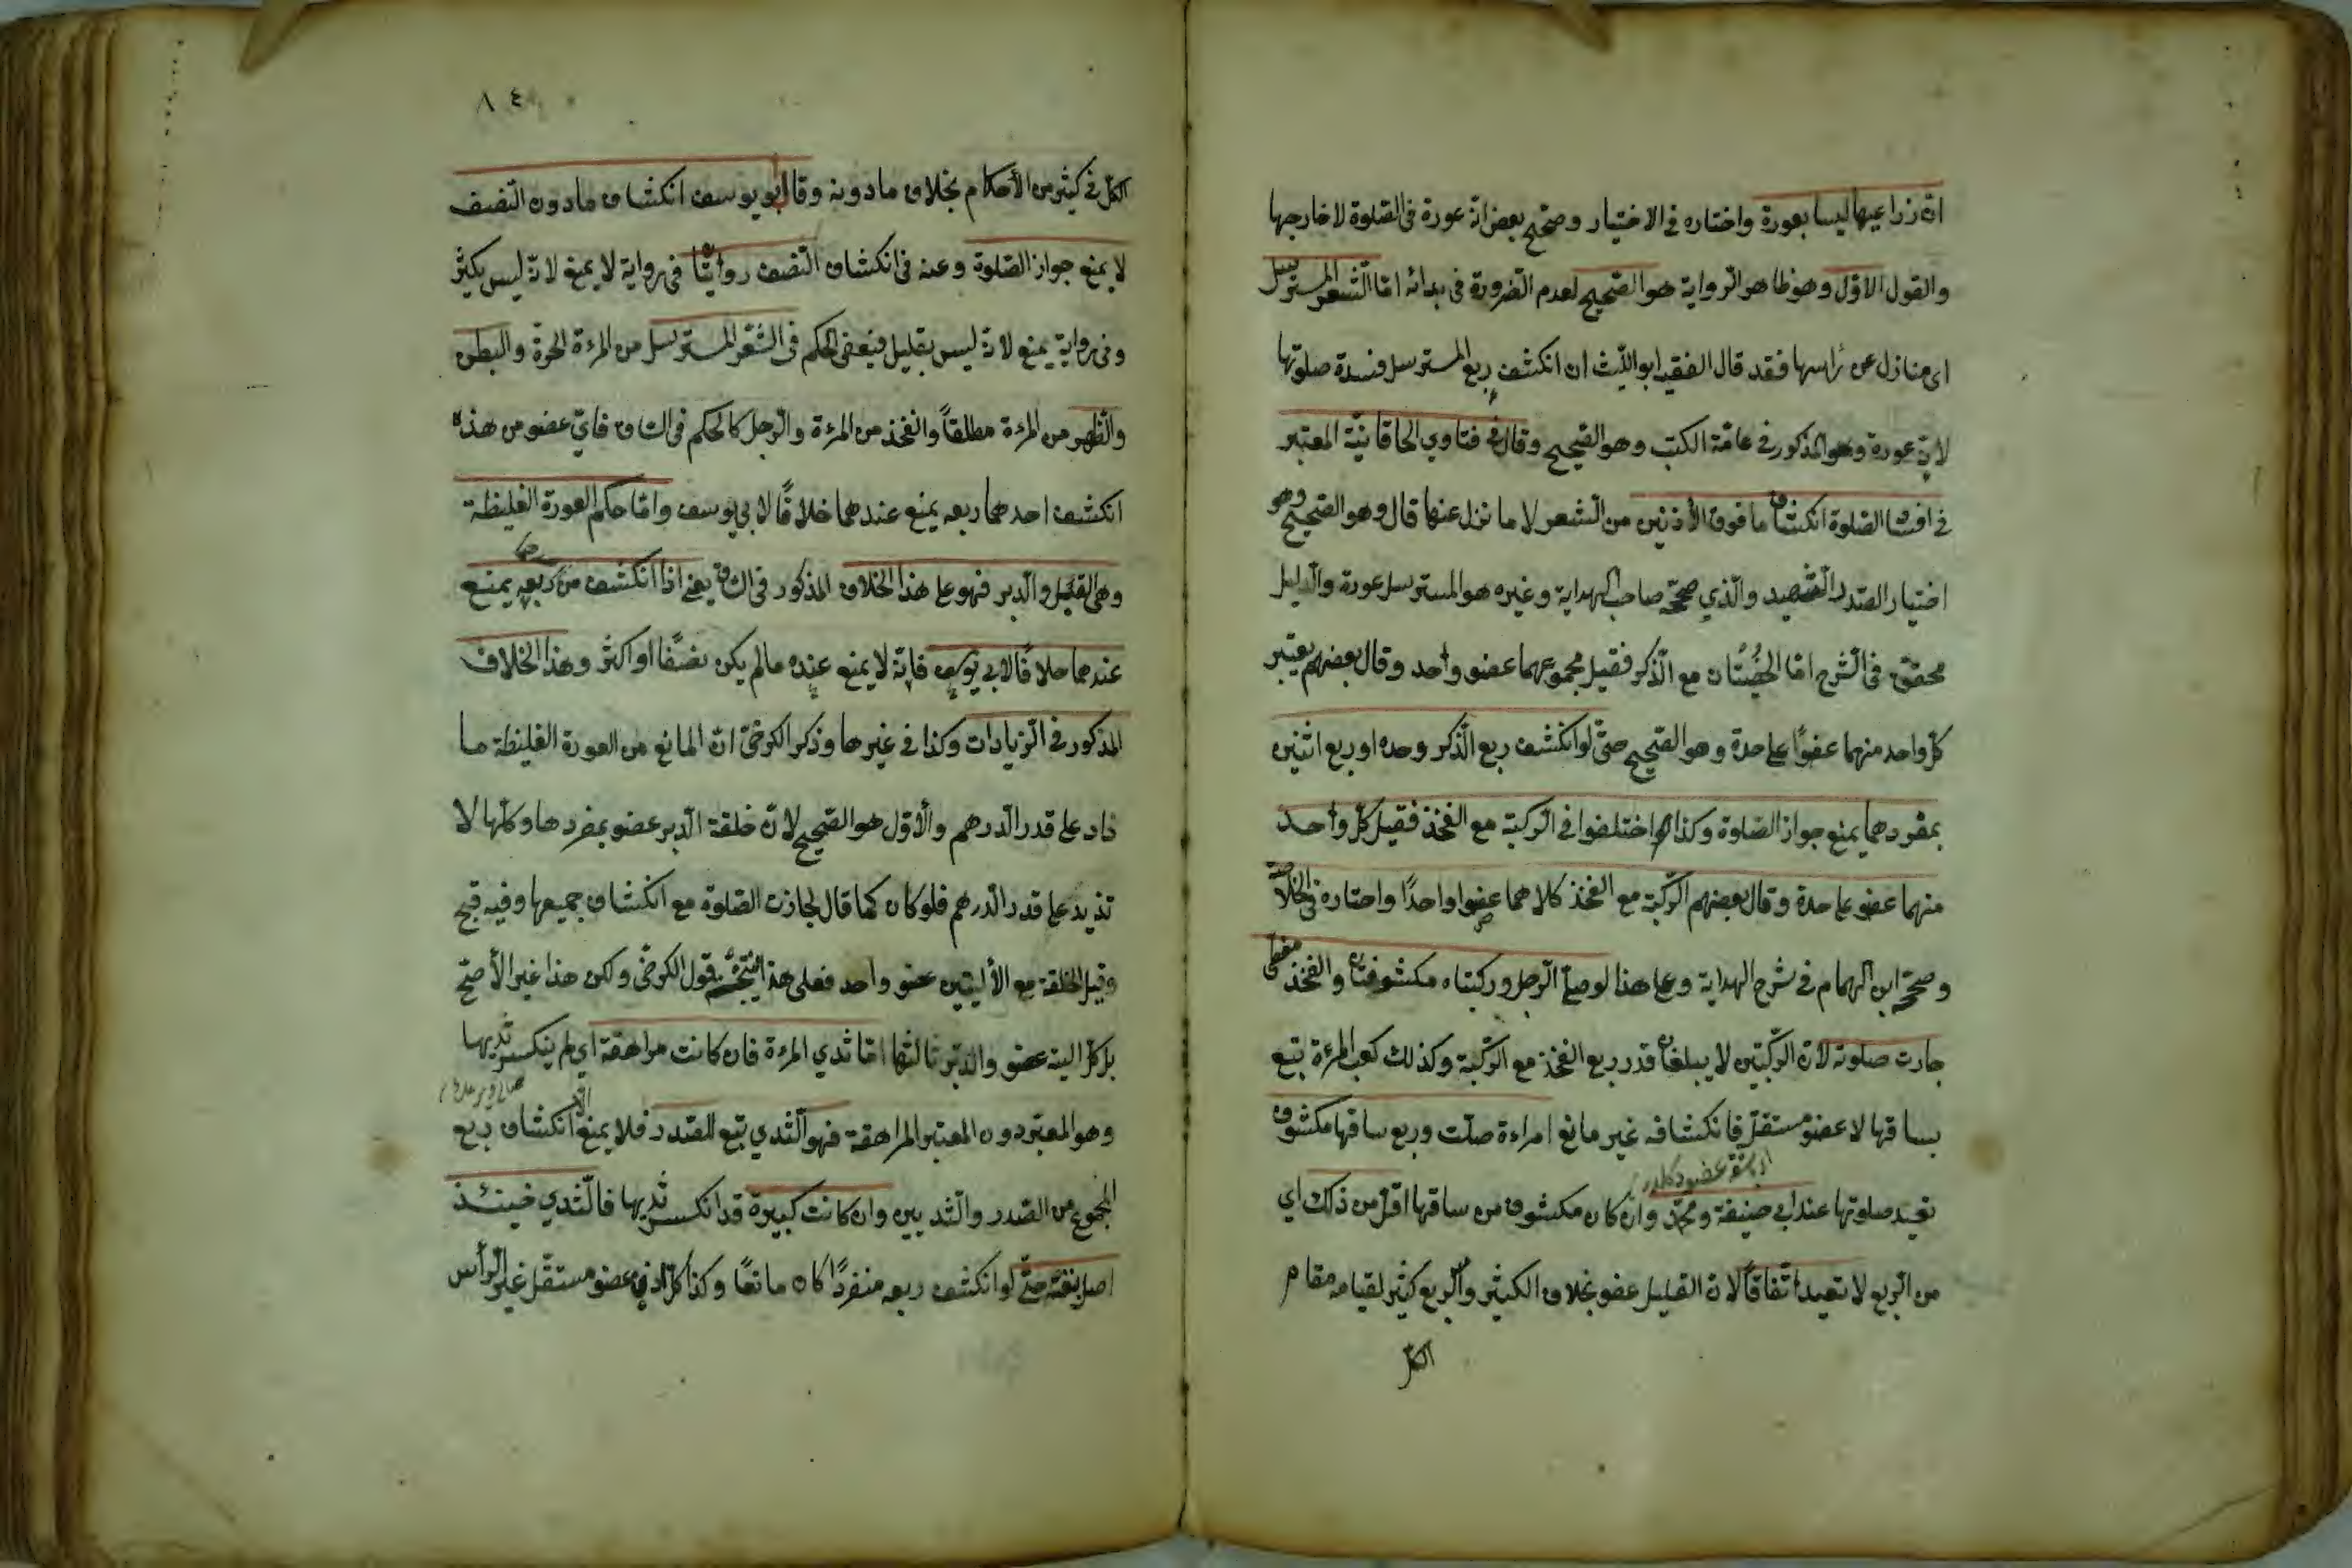 ان زراعيها ليسا بعورة واختاره في الاختيار وصحّح بعض انه عورة في الصّلوة لا خارجها
والقول الاوّل وهو ظاهر الرواية هو الصّحيح لعدم الضّرورة في بدائه امّا الشّعر المسترسل
اى منازل عن رأسها فقد قال الفقيه ابو اللّيث ان انكشف ربع المسترسل فسدة صلوتها
لانه عورة وهو المذكور في عامّة الكتب وهو الصّحيح وقال في فتاوي الخاقانية المعتبر
في افساد الصّلوة انكشاف ما فوق الأذنين من الشعر لا ما نزل عنها قال وهو الصّحيح وهو
اختيار الصّدر الشّهيد والّذي صحّحه صاحب الهداية وغيره هو المسترسل عورة والدليل
محقّق في الشّرح امّا الخُصْيَتَان مع الذّكر فقيل مجموعهما عضو واحد وقال بعضهم يعتبر
كلّ واحد منهما عضوًا على حدة وهو الصّحيح حتّى لو انكشف ربع الذّكر وحده او ربع اثنين
بمفردهما يمنع جواز الصّلوة وكذا اختلفوا في الرّكبة مع الفخذ فقيل كلّ واحد
منهما عضو على حدة وقال بعضهم الرّكبة مع الفخذ كلاهما عضوا واحدًا واختاره في الخلاصة
وصحّحه ابن الهمام في شرح الهداية وعلى هذا لو صلّى الرّجل وركبتاه مكشوفتان والفخذ مغطى
جازت صلوته لانّ الرّكبتين لا يبلغان قدر ربع الفخذ مع الرّكبة وكذلك كعب المرءة تبع
بساقها لا عضو مستقلّ فانكشافه غير مانع امراءة صلّت وربع ساقها مكشوف
تعيد صلوتها عند ابي حنيفة ومحمّد وان كان مكشوف من ساقها اقلّ من ذلك اي
من الرّبع لا تعيد اتّفاقًا لانّ القليل عفو بخلاف الكثير والرّبع كثير لقيامه مقام
الكلّ
٨٤
الكلّ في كثير من الأحكام بخلاف مادونه وقال ابو يوسف انكشاف مادون النّصف
لا يمنع جواز الصّلوة وعنه في انكشاف النّصف روايتان في رواية لا يمنع لانّه ليس بكثير
وفي رواية يمنع لانّه ليس بقليل فيعفى الحكم في الشّعر المسترسل من المرءة الحرّة والبطن
والظّهر من المرءة مطلقاً والفخذ من المرءة والرّجل كالحكم في السّاق فايّ عضو من هذه
انكشف احدهما ربعه يمنع عندهما خلافًا لابي يوسف وامّا حكم العورة الغليظة
وهي القبل والدّبر فهو على هذا الخلاف المذكور في السّاق يعني اذا انكشف من ربعه يمنع
عندهما خلافًا لابي يوسف فانّه لا يمنع عنده مالم يكن نصفًا او اكثر وهذا الخلاف
المذكور في الزّيادات وكذا في غيرها وذكر الكرخيّ انّ المانع من العورة الغليظة ما
ذاد على قدر الدّرهم والأوّل هو الصّحيح لانّ خلقة الدّبر عضو بمفردها وكلّها لا
تذيد على قدر الدّرهم فلو كان كما قال لجازت الصّلوة مع انكشاف جميعها وفيه قبح
وقيل الخلقة مع الأليتين عضو واحد فعلى هذا يتّجه قول الكرخيّ ولكن هذا غير الأصحّ
بل كلّ الية عضو والدبر ثالثها امّا ثدي المرءة فان كانت مراهقة اي لم ينكسر ثديها
وهو المعتبر دون المعتبر المراهقة فهو الثّدي تبع للصّدر فلا يمنع الّا انكشاف ربع
المجموع من الصّدر والثّديين وان كانت كبيرة قد انكسر ثديها فالثّدي حينئذ
اصل بنفسه حتّى لو انكشف ربعه منفردًا كان مانعًا وكذا كلّ اذن عضو مستقلّ غير الرّأس